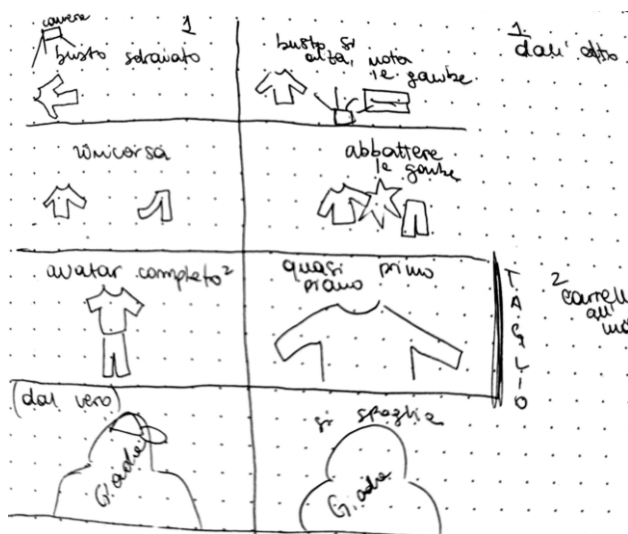 camera
1
busto sdraiato
busto si
alza, nota
le gambe
1.
dall'alto
rincorsa
abbattere
le gambe
avatar completo²
quasi primo
piano
TAGLIO
2
carrell
all'
(dal vero)
Giada
si spoglia
Giada